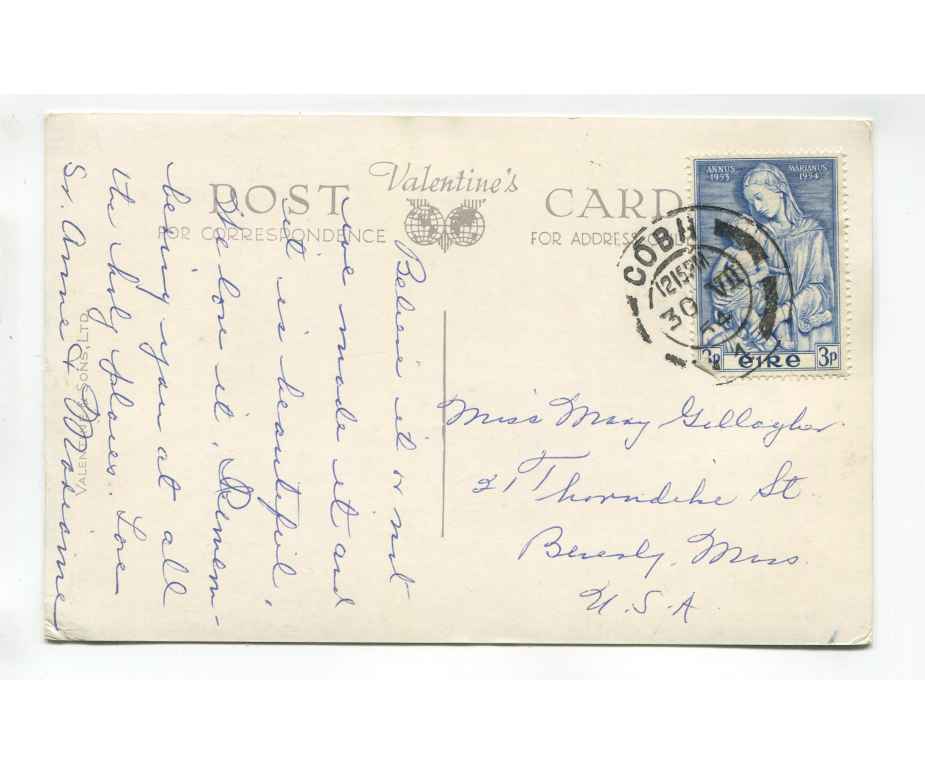 POST Valentine's CARD
FOR CORRESPONDENCE
FOR ADDRESS ONLY
Believe it or not
we made it and
it is beautiful.
We love it. Remem-
bering you at all
the holy places. Love
Sr. Anne &
VALENTINE & SONS, LTD.
ANNUS MARIANUS
1953 1954
éire 3p
3p
CÓBH
1215PM
30 VII
54
Miss Mary Gallagher
21 Thorndike St.
Beverly, Mass.
U.S.A.